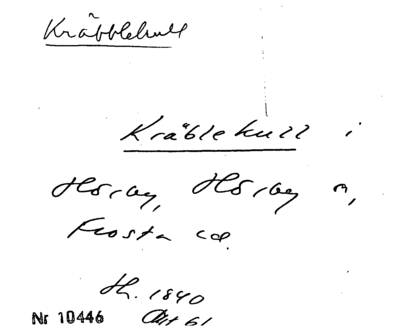 Kräbblekull
Kräblekull i
Hörby, Hörby sn,
Frosta hd.
Th. 1840
Nr 10446 Akt 61